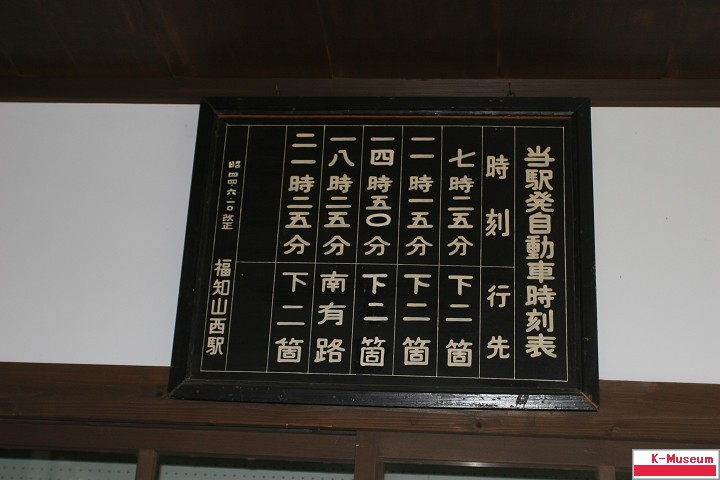 当駅発自動車時刻表
時刻 行先
七時二五分 下二箇
一一時一五分 下二箇
一四時五〇分 下二箇
一八時二五分 南有路
二一時二五分 下二箇
福知山西駅
K-Museum